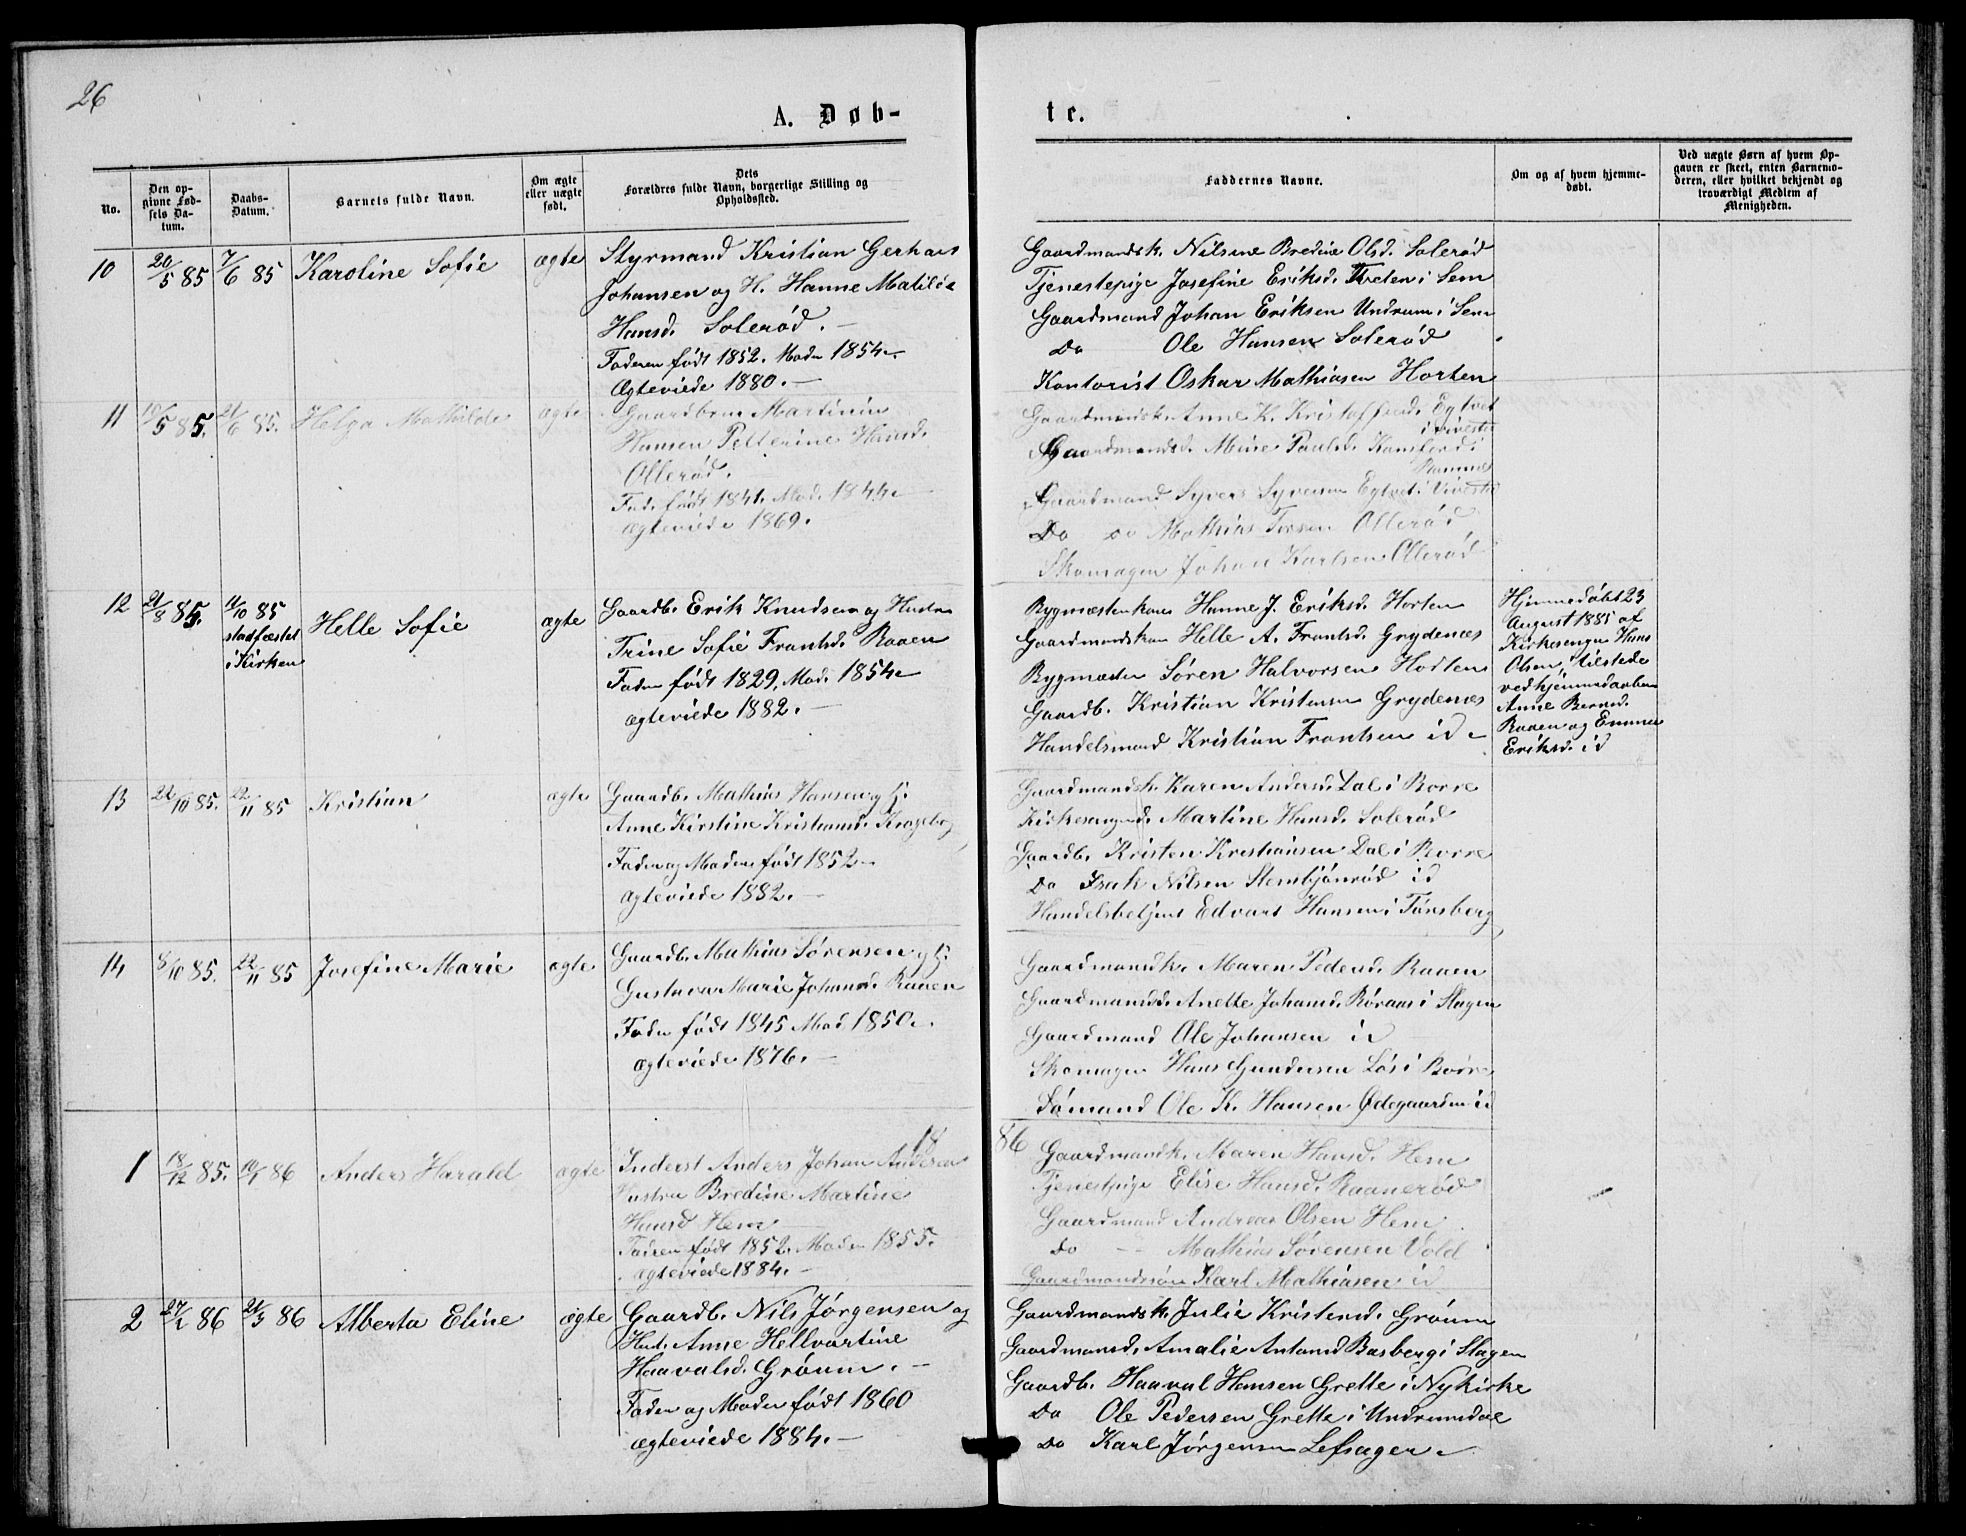 26
A. Døb-
te.
No.
Den op-
givne Fød-
sels Da-
tum.
Daabs-
Datum.
Barnets fulde Navn.
Om ægte
eller uægte
født.
Dets
Forældres fulde Navn, borgerlige Stilling og
Opholdssted.
Faddernes Navne.
Om og af hvem hjemme-
døbt.
Ved uægte Børn af hvem Op-
gaven er skeet, enten Barnemo-
deren, eller hvilket bekjendt og
troværdigt Medlem af
Menigheden.
10
20/5 85
7/6 85
Karoline Sofie
ægte
Styrmand Kristian Gerhart
Johansen og H. Hanne Matilde
Hansd. Solerød.
Faderen født 1852. Moder 1854.
Ægteviede 1880.
Gaardmandsk. Nilsine Bredine Olsd. Solerød
Tjenestepige Josefine Eriksd. Tveten i Sem
Gaardmand Johan Eriksen Undrum i Sem
Do Ole Hansen Solerød
Kontorist Oskar Mathiasen Horten
11
5 85.
21/6 85.
Helga Mathilde
ægte
Gaardbru Martinin
Hansen Petterine Hansd.
Ollerød.
Fad. født 1841. Mod. 1844.
ægteviede 1869.
Gaardmandsk. Anne K. Kristoffersd. Egtvet
i Vivestad
Gaardmandsd. Mine Paulsd.
i
Ramnes
Gaardmand Syver Syversen Egtvet i Vivestad
Do do Mathias Torsen Ollerød
Skomager Johan Karlsen Ollerød
12
21/8 85.
11/10 85
stadfæstet
i Kirken
Helle Sofie
ægte
Gaardb. Erik Knudsen og Hustru
Trine Sofie Frantsd. Raaen
Fader født 1829, Mod. 1854
ægteviede 1882.
Bygmesterkone Hanne J. Eriksd. Horten
Gaardmandskone Helle A. Frantsd. Grydenæs
Bygmester Søren Halvorsen Hortens
Gaardb. Kristian Kristensen Grydenæs
Handelsmand Kristian Frantsen id
Hjemmedøbt 23
August 1885 af
Kirkesanger Hans
Olsen, tilstede
ved hjemmedaaben
Anne Berntsd.
Raaen og Emma
Eriksd. id
13
10 85.
22/11 85
Kristian
ægte
Gaardb. Mathias Hansen og H.
Anne Kirstine Kristiansd.
Fader og Moder født 1852
ægteviede 1882.
Gaardmandsk. Karen Andersd. Dal i Borre
Kirkesangerd. Martine Hansd. Solerød
Gaardb. Kristen Kristiansen Dal i Borre
Do Isak Nilsen id
Handelsbetjent Edvart Hansen i Tønsberg
14
8/10 85.
22/11 85
Josefine Marie
ægte
Gaardb. Mathias Sørensen og H.
Gustava Marie Johansd. Raaen
Fader født 1845 Mod. 1850.
ægteviede 1876.
Gaardmandsk. Maren Pedersd. Raaen
Gaardmandsd. Anette Johansd. Røraas i Slagen
Gaardmand Ole Johansen id
Skomager Hans Gundersen Løs i Borre
Sømand Ole K. Hansen Ødegaarden id
18 86
1
18/12 85.
10/1 86
Anders Harald
ægte
Inderst Anders Johan Andersen
Hustru Bredine Martine
Hansd Hem
Faderen født 1852. Moder 1855.
ægteviede 1884.
Gaardmandk. Maren Hansd. Hem
Tjenestepige Elise Hansd. Raanerød
Gaardmand Andreas Olsen Hem
do Mathias Sørensen Vold
Gaardmandssøn Karl Mathiasen id
2
27/1 86
21/3 86
Alberta Eline
ægte
Gaardb. Nils Jørgensen og
Hust. Anne Hellvartine
Haavalsd. Grøum.
Fader og Moder født 1860
ægteviede 1884.
Gaardmandsk. Julie Kristensd. Grøum
Gaardmansd. Amalie Antonsd Basberg i Slagen
Gaardb. Haaval Hansen Grette i Nykirke
Do Ole Pedersen Grette i Undrumsdal
Do Karl Jørgensen Lefsager